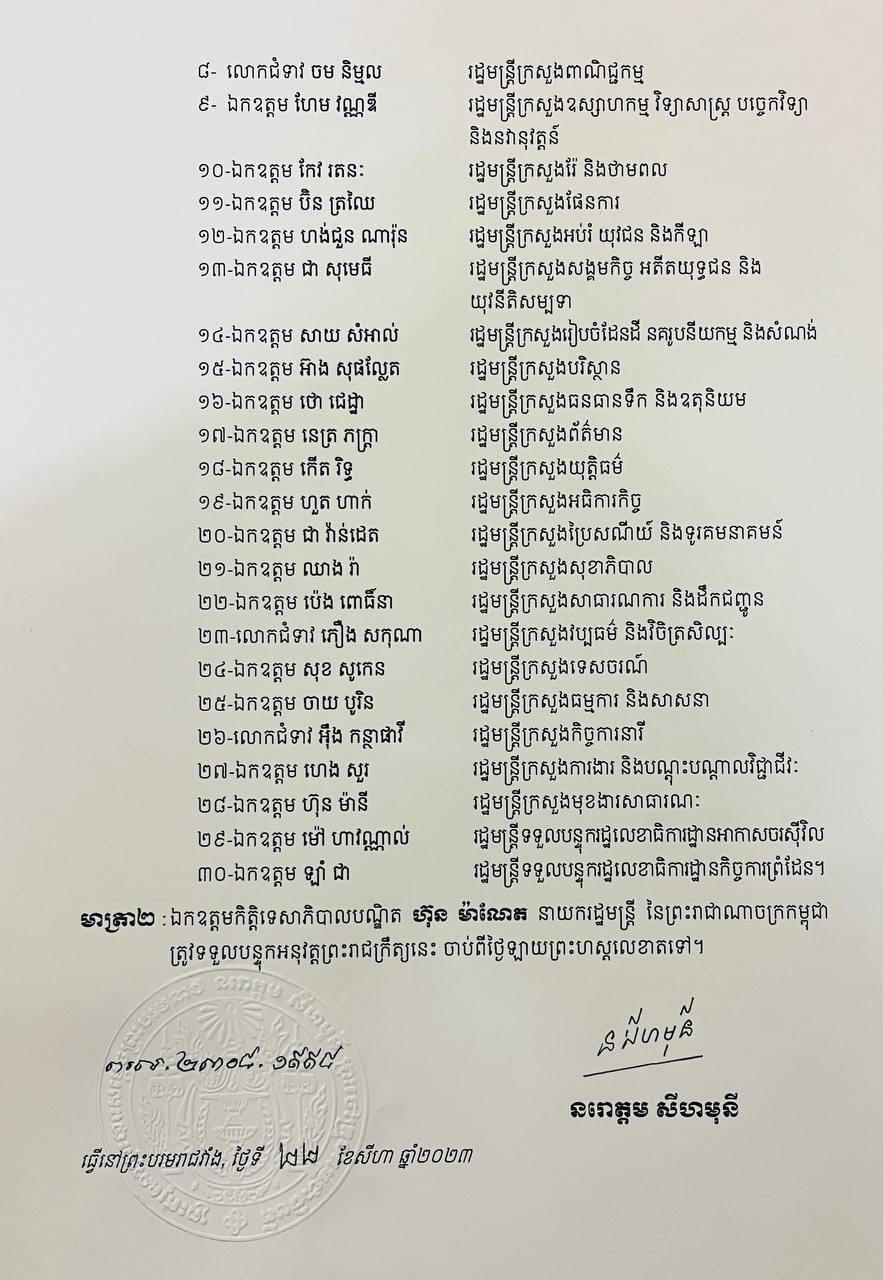 ៨- លោកជំទាវ ចម និម្មល រដ្ឋមន្ត្រីក្រសួងពាណិជ្ជកម្ម
៩- ឯកឧត្តម ហែម វណ្ណឌី រដ្ឋមន្ត្រីក្រសួងឧស្សាហកម្ម វិទ្យាសាស្ត្រ បច្ចេកវិទ្យា
និងនវានុវត្តន៍
១០-ឯកឧត្តម កែវ រតនៈ រដ្ឋមន្ត្រីក្រសួងរ៉ែ និងថាមពល
១១-ឯកឧត្តម ប៊ិន ត្រឈៃ រដ្ឋមន្ត្រីក្រសួងផែនការ
១២-ឯកឧត្តម ហង់ជួន ណារ៉ុន រដ្ឋមន្ត្រីក្រសួងអប់រំ យុវជន និងកីឡា
១៣-ឯកឧត្តម ជា សុមេធី រដ្ឋមន្ត្រីក្រសួងសង្គមកិច្ច អតីតយុទ្ធជន និង
យុវនីតិសម្បទា
១៤-ឯកឧត្តម សាយ សំអាល់ រដ្ឋមន្ត្រីក្រសួងរៀបចំដែនដី នគរូបនីយកម្ម និងសំណង់
១៥-ឯកឧត្តម អ៊ាង សុផល្លែត រដ្ឋមន្ត្រីក្រសួងបរិស្ថាន
១៦-ឯកឧត្តម ថោ ជេដ្ឋា រដ្ឋមន្ត្រីក្រសួងធនធានទឹក និងឧតុនិយម
១៧-ឯកឧត្តម នេត្រ ភក្ត្រា រដ្ឋមន្ត្រីក្រសួងព័ត៌មាន
១៨-ឯកឧត្តម កើត រិទ្ធ រដ្ឋមន្ត្រីក្រសួងយុត្តិធម៌
១៩-ឯកឧត្តម ហួត ហាក់ រដ្ឋមន្ត្រីក្រសួងអធិការកិច្ច
២០-ឯកឧត្តម ជា វ៉ាន់ដេត រដ្ឋមន្ត្រីក្រសួងប្រៃសណីយ៍ និងទូរគមនាគមន៍
២១-ឯកឧត្តម ឈាង រ៉ា រដ្ឋមន្ត្រីក្រសួងសុខាភិបាល
២២-ឯកឧត្តម ប៉េង ពោធិ៍នា រដ្ឋមន្ត្រីក្រសួងសាធារណការ និងដឹកជញ្ជូន
២៣-លោកជំទាវ ភឿង សកុណា រដ្ឋមន្ត្រីក្រសួងវប្បធម៌ និងវិចិត្រសិល្បៈ
២៤-ឯកឧត្តម សុខ សូកេន រដ្ឋមន្ត្រីក្រសួងទេសចរណ៍
២៥-ឯកឧត្តម ចាយ បូរិន រដ្ឋមន្ត្រីក្រសួងធម្មការ និងសាសនា
២៦-លោកជំទាវ អ៊ឹង កន្ថាផាវី រដ្ឋមន្ត្រីក្រសួងកិច្ចការនារី
២៧-ឯកឧត្តម ហេង សួរ រដ្ឋមន្ត្រីក្រសួងការងារ និងបណ្តុះបណ្តាលវិជ្ជាជីវៈ
២៨-ឯកឧត្តម ហ៊ុន ម៉ានី រដ្ឋមន្ត្រីក្រសួងមុខងារសាធារណៈ
២៩-ឯកឧត្តម ម៉ៅ ហាវណ្ណាល់ រដ្ឋមន្ត្រីទទួលបន្ទុករដ្ឋលេខាធិការដ្ឋានអាកាសចរស៊ីវិល
៣០-ឯកឧត្តម ឡាំ ជា រដ្ឋមន្ត្រីទទួលបន្ទុករដ្ឋលេខាធិការដ្ឋានកិច្ចការព្រំដែន។
មាត្រា២ : ឯកឧត្តមកិត្តិទេសាភិបាលបណ្ឌិត ហ៊ុន ម៉ាណែត នាយករដ្ឋមន្ត្រី នៃព្រះរាជាណាចក្រកម្ពុជា
ត្រូវទទួលបន្ទុកអនុវត្តព្រះរាជក្រឹត្យនេះ ចាប់ពីថ្ងៃឡាយព្រះហស្តលេខាតទៅ។
ន សីហមុនី
ព.រល.២៣០៨.១៩៩៨
នរោត្តម សីហមុនី
ធ្វើនៅព្រះបរមរាជវាំង, ថ្ងៃទី ២២ ខែសីហា ឆ្នាំ២០២៣